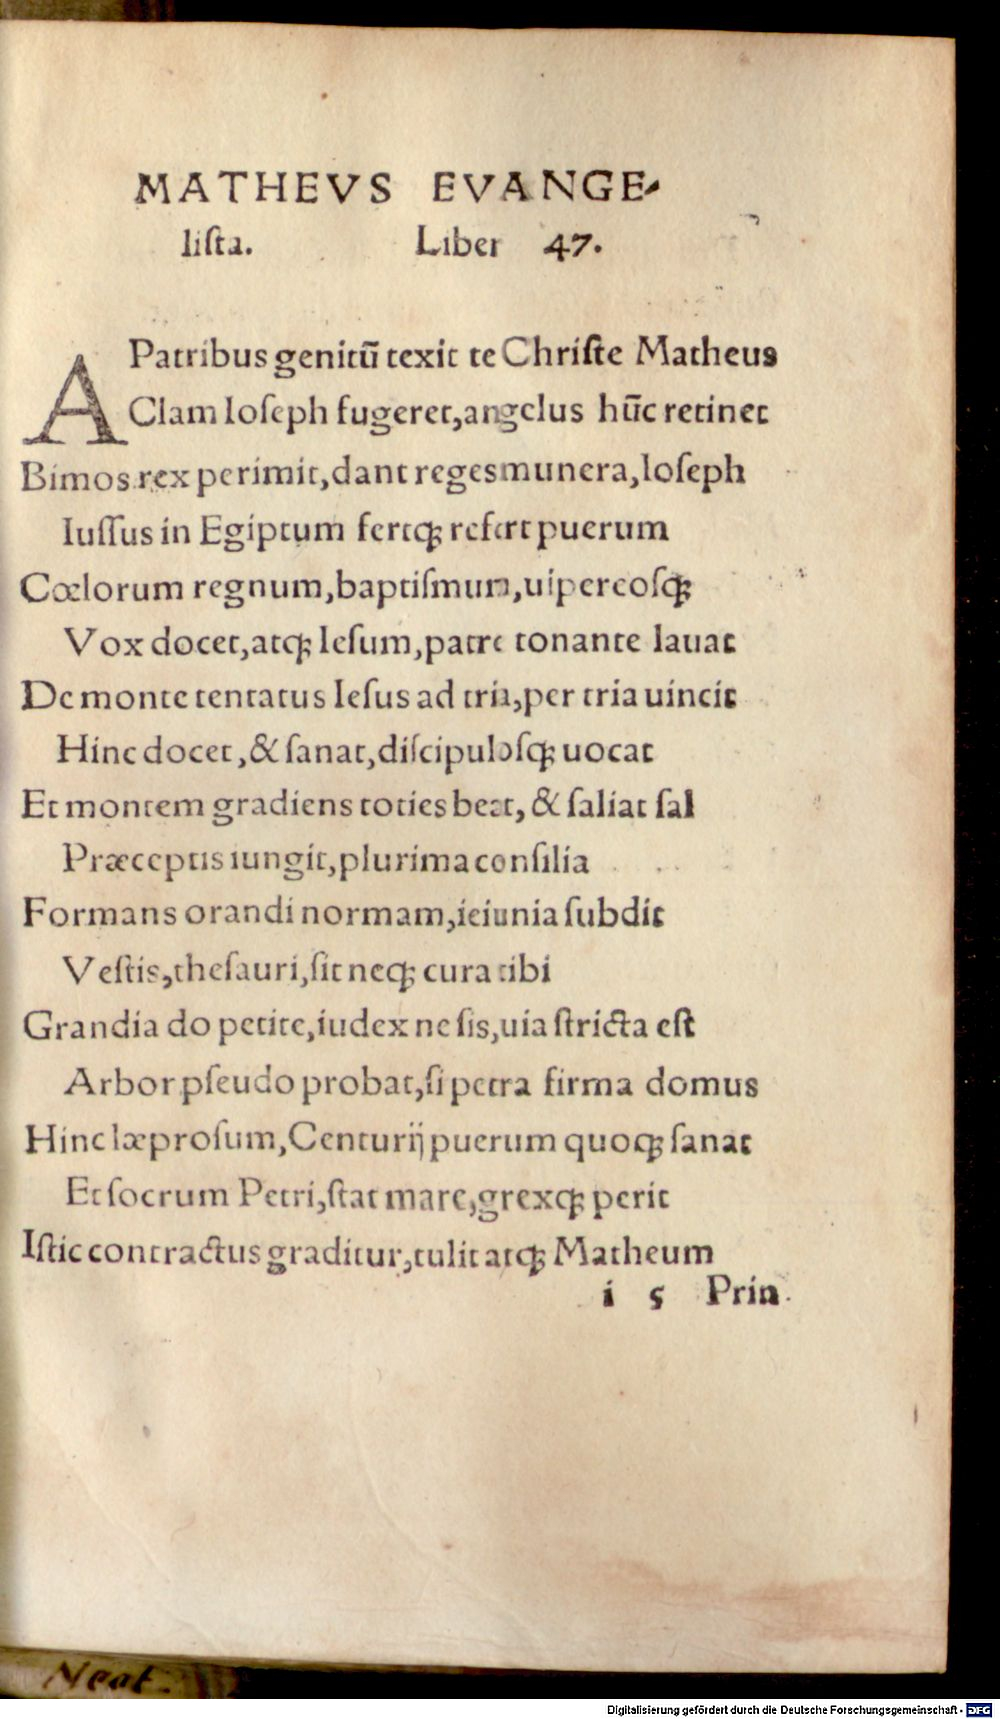 MATHEVS EVANGE-
lista. Liber 47.
A Patribus genitū texit te Christe Matheus
Clam Ioseph fugeret, angelus hūc retinet
Bimos rex perimit, dant reges munera, Ioseph
Iussus in Egiptum fertq; refert puerum
Cœlorum regnum, baptismum, uipereosq;
Vox docet, atq; Iesum, patre tonante lauat
De monte tentatus Iesus ad tria, per tria uincit
Hinc docet, & sanat, discipulosq; uocat
Et montem gradiens toties beat, & saliat sal
Præceptis iungit, plurima consilia
Formans orandi normam, ieiunia subdit
Vestis, thesauri, sit neq; cura tibi
Grandia do petite, iudex ne sis, uia stricta est
Arbor pseudo probat, si petra firma domus
Hinc læprosum, Centurij puerum quoq; sanat
Et socrum Petri, stat mare, grexq; perit
Istic contractus graditur, tulit atq; Matheum
i 5 Prin
Neat.
Digitalisierung gefördert durch die Deutsche Forschungsgemeinschaft - DFG